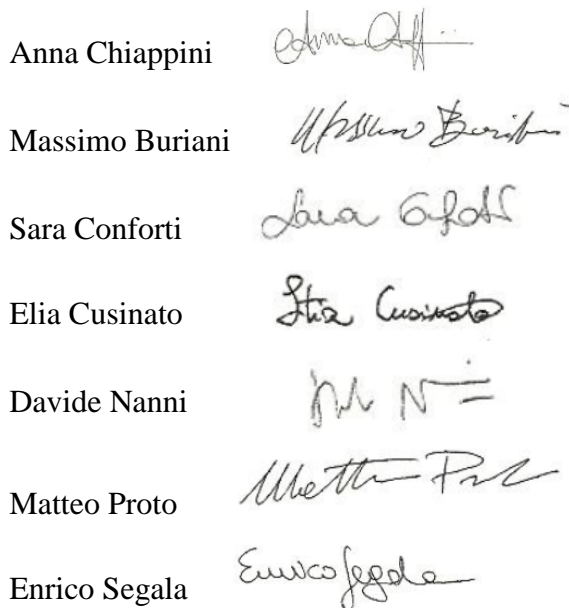 Anna Chiappini
Massimo Buriani Massimo Buriani
Sara Conforti Sara
Elia Cusinato Elia Cusinato
Davide Nanni
Matteo Proto Matteo
Enrico Segala Enrico Segala